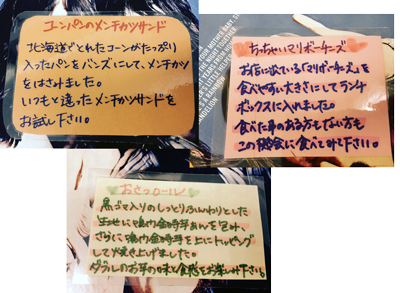 コーンパンのメンチカツサンド
北海道でとれたコーンがたっぷり
入ったパンをバンズにして、メンチカツ
をはさみました。
いつもと違ったメンチカツサンドを
お試し下さい。
ちっちゃいマリボーチーズ
お店に並ている「マリボーチーズ」を
食べやすい大きさにしてランチ
ボックスに入れました。
食べた事のある方もない方も
この機会に食べてみて下さい。
おさつロール
黒ゴマ入りのしっとりふんわりとした
生地に鳴門金時芋あんを包み、
さらに鳴門金時芋を上にトッピング
して焼き上げました。
ダブルのお芋の味と食感をお楽しみ下さい。